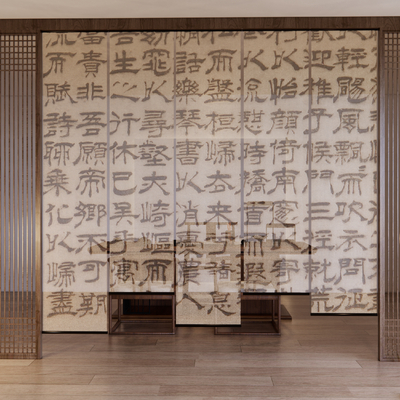 輕颺風飄而吹衣問征
歡迎稚子候門三徑就荒
柯以怡顏倚南窗以寄
以流憩時矯首而遐
松而盤桓歸去來兮請息
情話樂琴書以消憂農人
窕以尋壑亦崎嶇而
吾生之行休已矣乎寓
富貴非吾願帝鄉不可期
流而賦詩聊乘化以歸盡